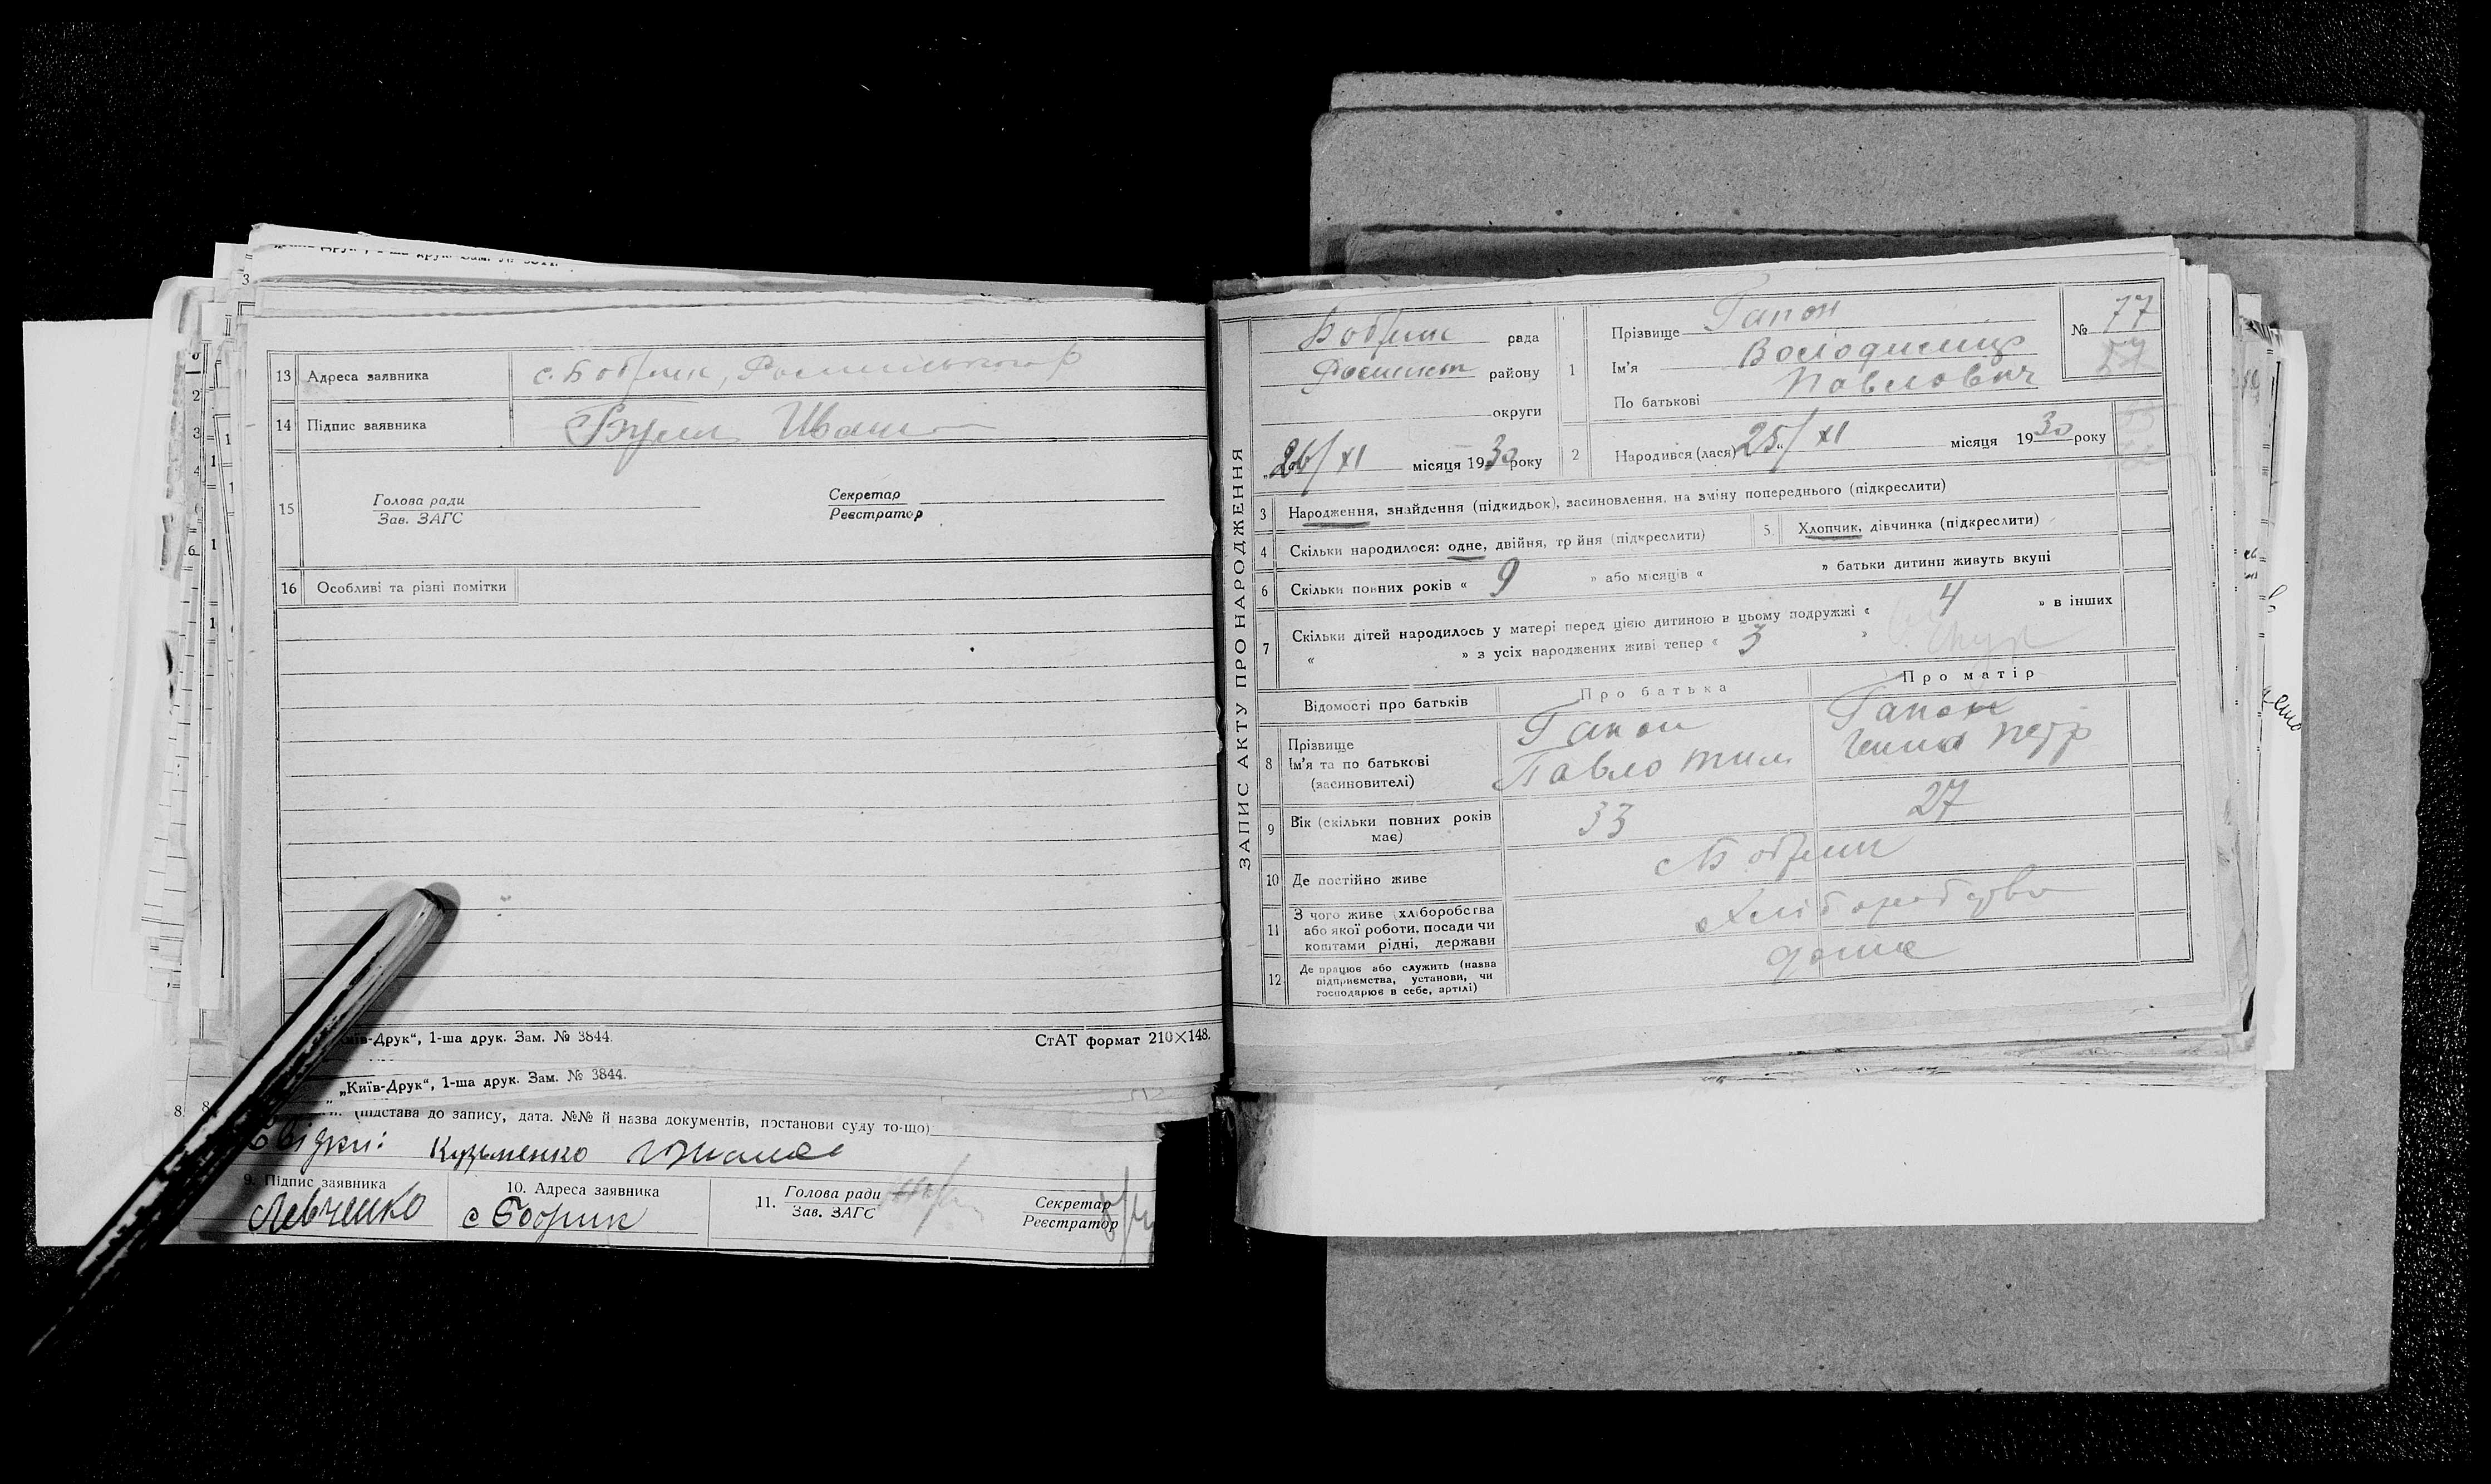 13 Адреса заявника с. Бобрик, Роменського р
14 Підпис заявника Іван
15 Голова ради Секретар
Зав. ЗАГС Реєстратор
16 Особливі та різні помітки
-Друк“, 1-ша друк. Зам. № 3844. СтАТ формат 210×148.
„Київ-Друк“, 1-ша друк. Зам. № 3844.
(підстава до запису, дата. №№ й назва документів, постанови суду то-що)
Свідки: Кузьменко
9. Підпис заявника 10. Адреса заявника 11. Голова ради Секретар
Зав. ЗАГС Реєстратор
Левченко с Бобрик
ЗАПИС АКТУ ПРО НАРОДЖЕННЯ
Бобрик рада
Роменськ району
округи
26/XI місяця 1930 року
1 Прізвище Гапон
Ім'я Володимир
По батькові Павлович
№ 77
57
2 Народився (лася) 25/XI місяця 1930 року
3 Народження, знайдення (підкидьок), засиновлення, на зміну попереднього (підкреслити)
4 Скільки народилося: одне, двійня, тр йня (підкреслити) 5 Хлопчик, дівчинка (підкреслити)
6 Скільки повних років « 9 » або місяців « » батьки дитини живуть вкупі
7 Скільки дітей народилось у матері перед цією дитиною в цьому подружжі « 4 » в інших
« » з усіх народжених живі тепер « 3 »
Відомості про батьків Про батька Про матір
8 Прізвище Гапон Гапон
Ім'я та по батькові Павло Тим Петр
(засиновителі)
9 Вік (скільки повних років має) 33 27
10 Де постійно живе с Бобрик
11 З чого живе (хліборобства
або якої роботи, посади чи
коштами рідні, держави
Хліборобство
12 Де працює або служить (назва
підприємства, установи, чи
господарює в себе, артілі)
дома